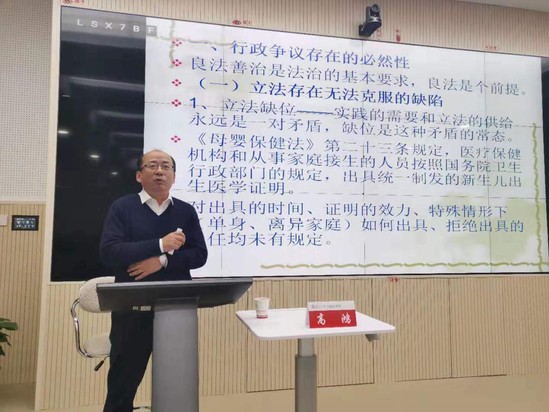 LSX7BF
一、行政争议存在的必然性
良法善治是法治的基本要求，良法是个前提。
（一）立法存在无法克服的缺陷
1、立法缺位——实践的需要和立法的供给
永远是一对矛盾，缺位是这种矛盾的常态。
《母婴保健法》第二十三条规定，医疗保健
机构和从事家庭接生的人员按照国务院卫生
行政部门的规定，出具统一制发的新生儿出
生医学证明。
对出具的时间、证明的效力、特殊情形下
（单身、离异家庭）如何出具、拒绝出具的
任均未有规定。
高 鸿